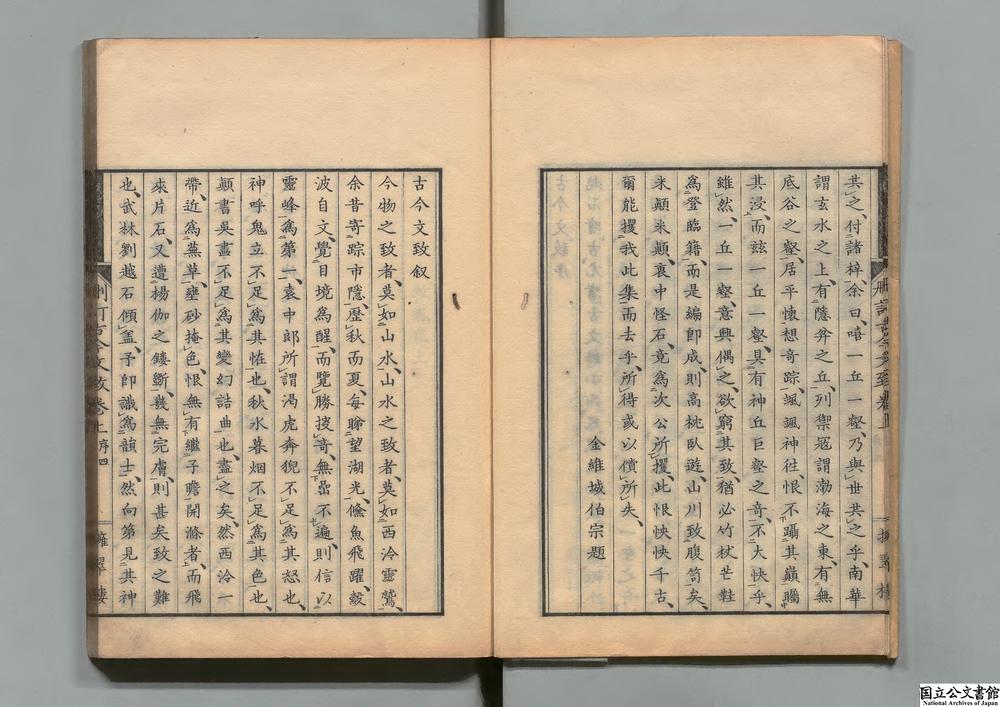 其之付諸梓余曰嘻一丘一壑乃與世共之乎南華
謂玄水之上有隱弅之丘列禦冦謂渤海之東有無
底谷之壑居平懷想奇踪颯颯神徃恨不躡其巔矚
其浸而玆一丘一壑具有神丘巨壑之奇不大快乎
雖然一丘一壑意興偶之欲窮其致猶必竹杖芒鞋
爲登臨籍而是編卽成則高枕臥遊山川致腹笥矣
米顛米顛裏中怪石竟爲次公所攫此恨怏怏千古
爾能攫我此集而去乎所得或以償所失
金維城伯宗題
古今文致叙
今物之致者莫如山水山水之致者莫如西泠靈鷲
余昔寄踪市隱歷秋而夏每睇望湖光鯈魚飛躍縠
波自文覺目境爲醒而覽勝披奇無嵒不遍則信以
靈峰爲第一袁中郎所謂渴虎奔猊不足爲其怒也
神呼鬼立不足爲其恠也秋水暮烟不足爲其色也
顛書吳畫不足爲其變幻詰曲也盡之矣然西泠一
帶近爲蕪草壅砂掩色恨無有繼子瞻開滌者而飛
來片石又遭楊伽之鏤斵幾無完膚則甚矣致之難
也武林劉越石傾盖予卽識爲韻士然向第見其神
刪訂古今文致卷上 序四
擁翠樓
国立公文書館
National Archives of Japan